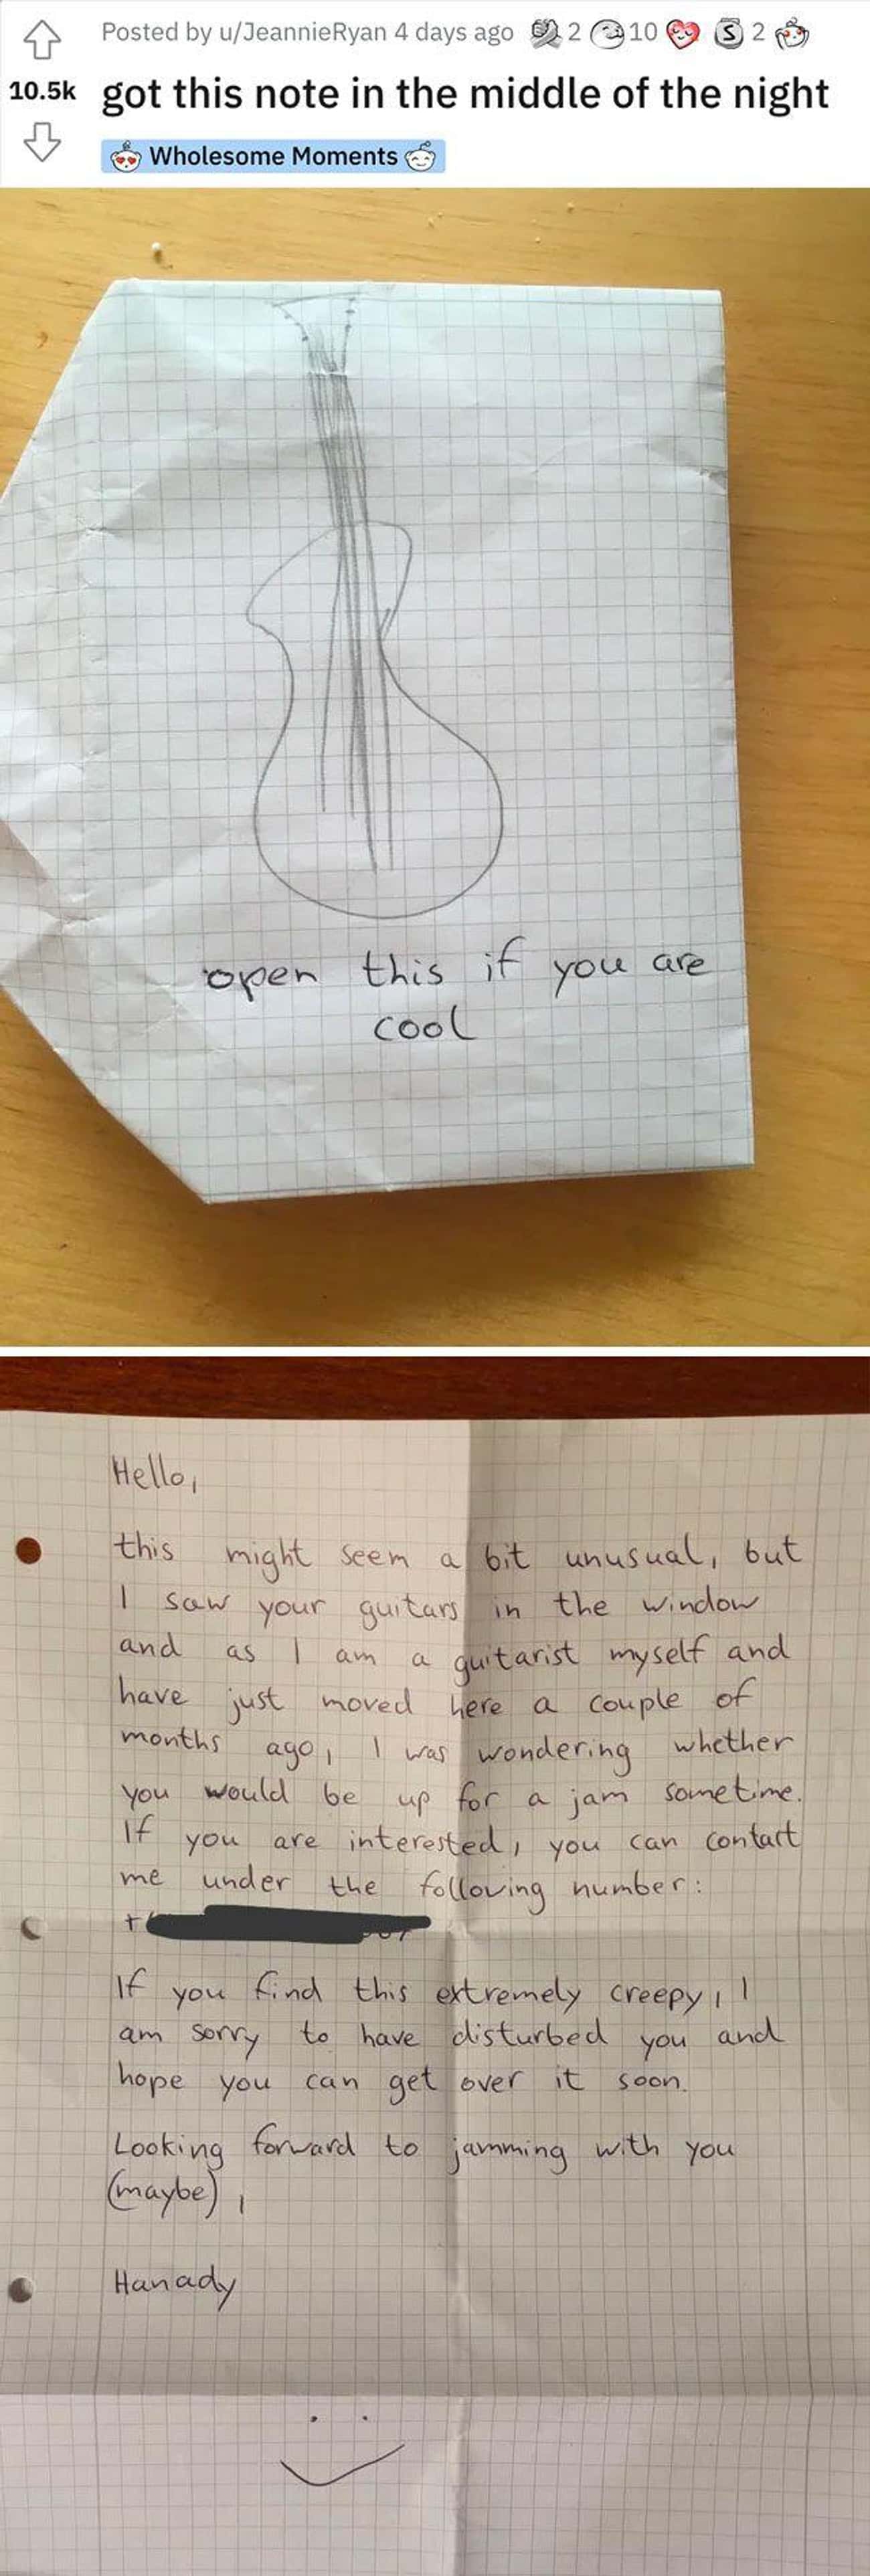 Posted by u/JeannieRyan 4 days ago 2 10 S 2
10.5k got this note in the middle of the night
Wholesome Moments
open this if you are
cool
Hello,
this might seem a bit unusual, but
I saw your guitars in the window
and as I am a guitarist myself and
have just moved here a couple of
months ago, I was wondering whether
you would be up for a jam sometime.
If you are interested, you can contact
me under the following number:
If you find this extremely creepy, I
am sorry to have disturbed you and
hope you can get over it soon.
Looking forward to jamming with you
(maybe),
Hanady